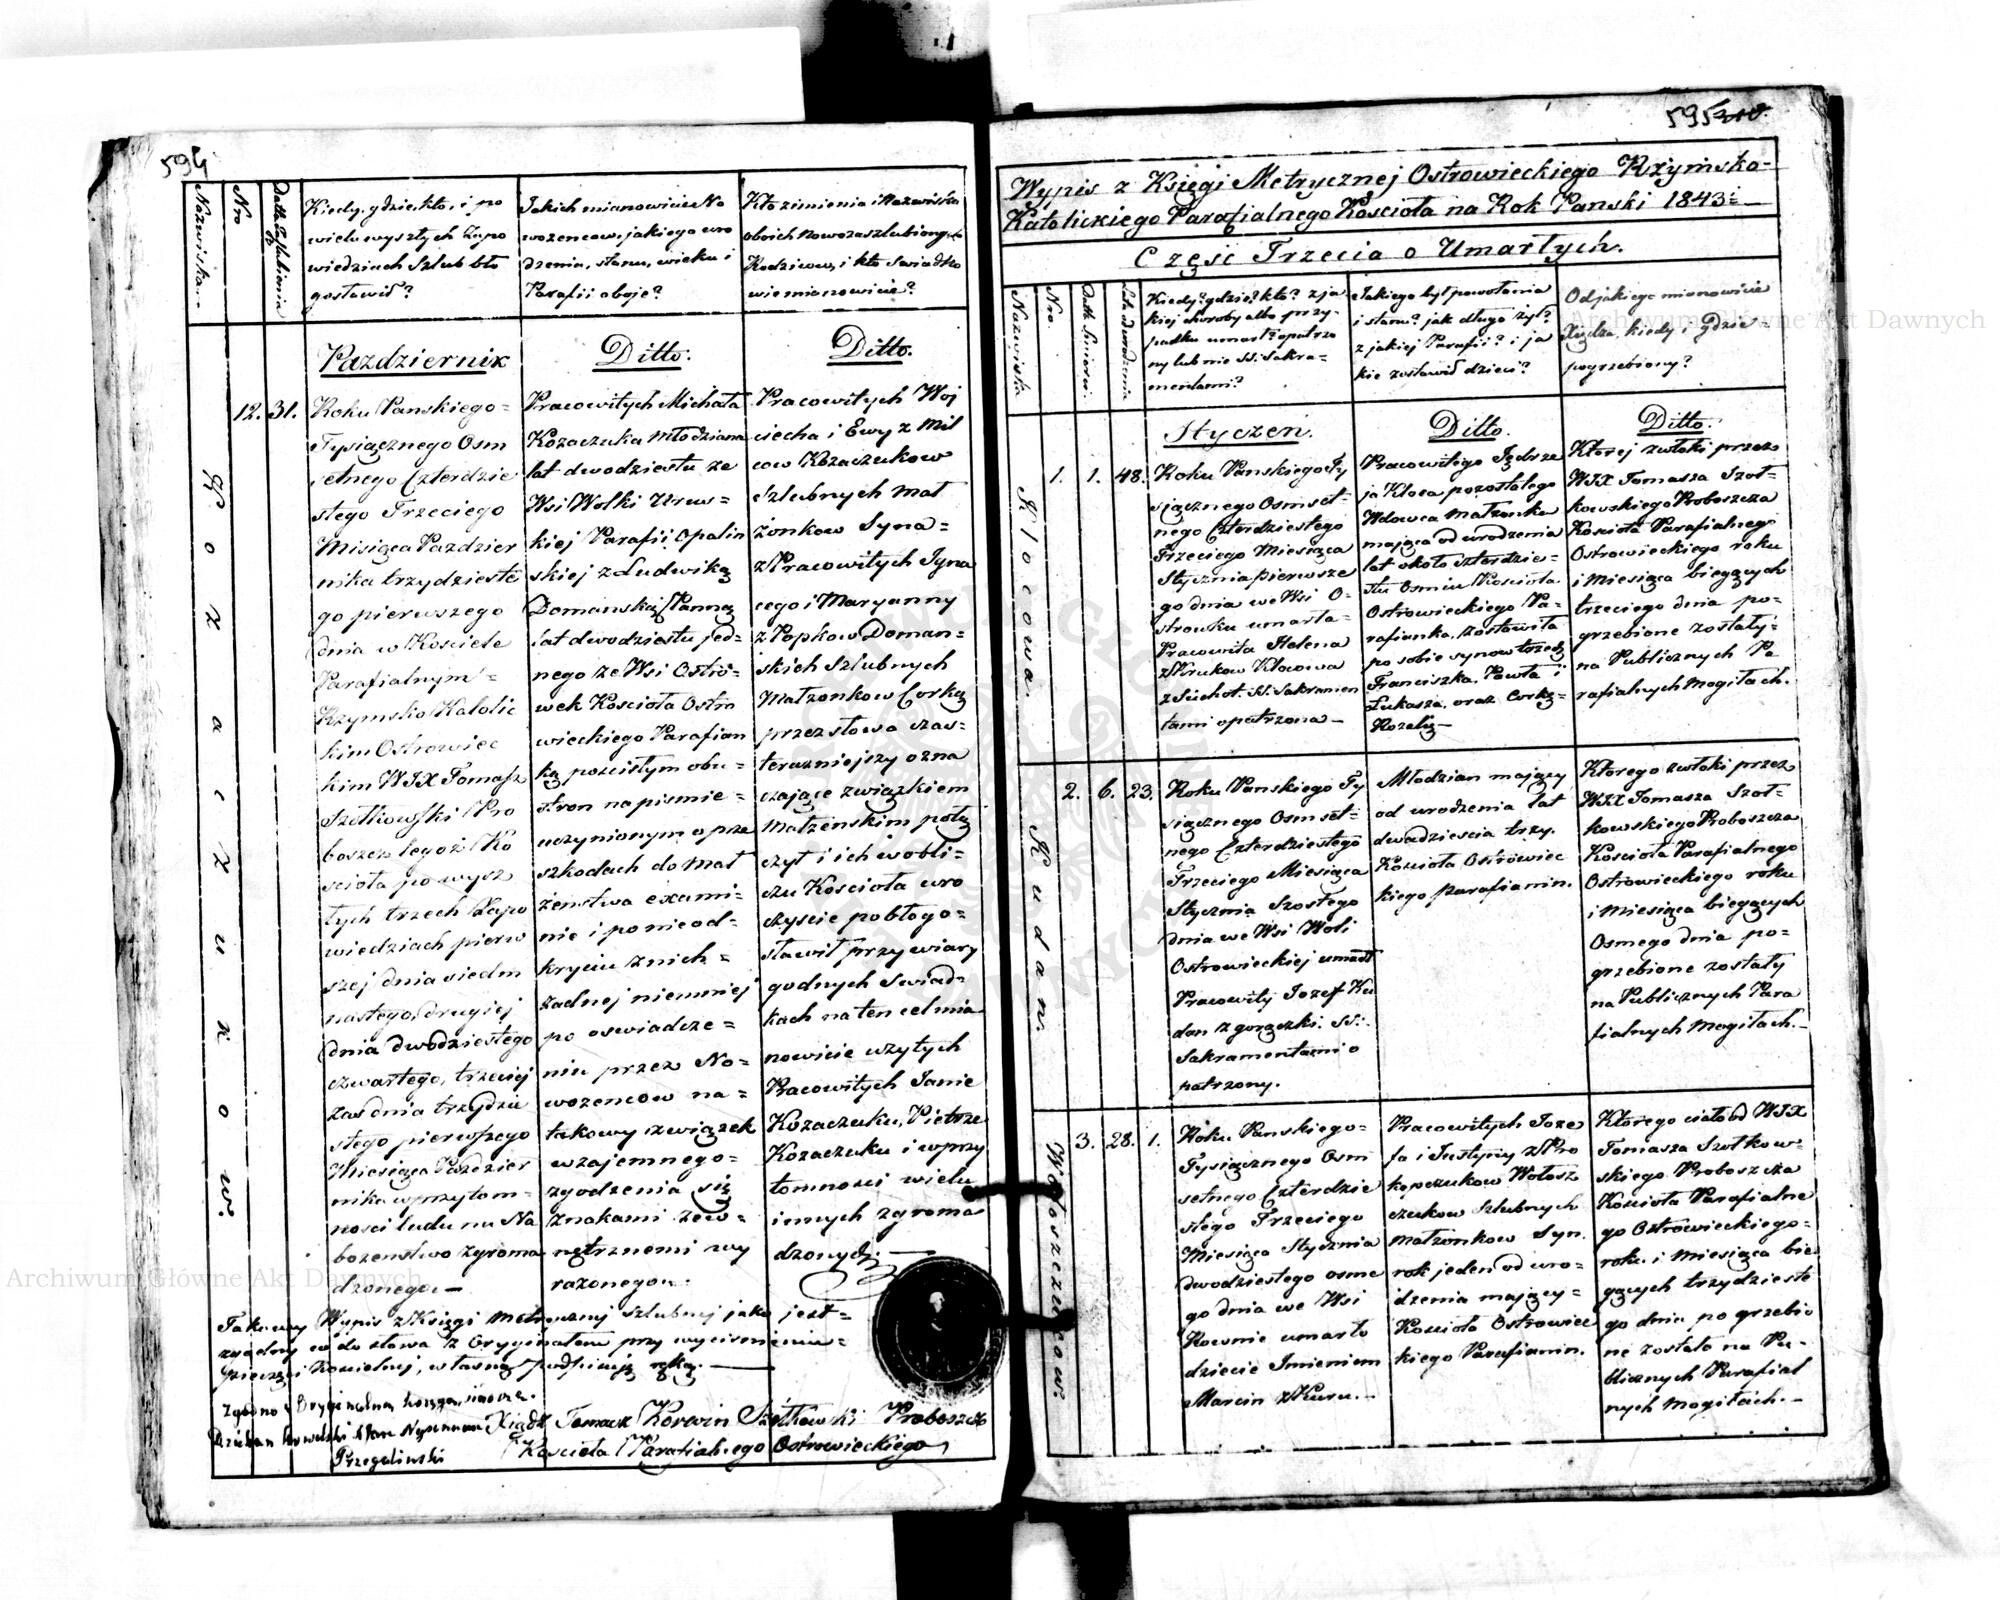 594
Nazwiska
Nro
Datta Zaślubienia
Kiedy, gdzie, kto, i po
wielu wyszłych Zapo
wiedziach Szlub bło
gosławił?
Jakich mianowicie No
wożencow, jakiego uro
dzenia, stanu, wieku i
Parafii oboje?
Kto z imienia i Nazwiska
oboich nowozaszlubionych
Rodziców, i kto Swiadko
wie mianowicie?
Pazdziernik
Ditto.
Ditto.
Kozaczukow.
12. 31.
Roku Panskiego=
Tysiącznego Osm
setnego Czterdzie
stego Trzeciego
Misiąca Pazdzier
nika trzydzieste
go pierwszego
dnia w Kosciele
Parafialnym=
Rzymsko Katolic
kim Ostrowiec
kim WJX Tomasz
Szołkowski Pro
boszcz tegoż Ko
scioła po wysz
łych trzech Zapo
wiedziach pierw
szej dnia siedm
nastego, drugiej
dnia dwódziestego
czwartego, trzeciej
zas dnia trzydzie
stego pierwszego
Miesiąca Pazdzier
nika w przytom=
nosci ludu na Na
bozenstwo zgroma
dzonego.—
Pracowitych Michała
Kozaczuka młodziana
lat dwodziestu ze
Wsi Wolki Urus=
kiej Parafii Opalin
skiej z Ludwiką
Domanską Panną
lat dwodziestu jed=
nego ze Wsi Ostro=
wek Koscioła Ostro
wieckiego Parafian
ką, poscisłym obu=
stron na pismie=
uczynionym o prze
szkodach do Mał
żenstwa exami=
nie i po nieod=
kryciu z nich=
żadnej niemniej
po oswiadcze=
niu przez No=
wozencow na=
takowy związek
wzajemnego=
zgodzenia się
znakami zew=
nętrznemi wy
razonego.
Pracowitych Woj
ciecha i Ewy z Mil
cow Kozaczukow
Szlubnych mał
żonkow Syna=
z Pracowitych Igna
cego i Maryanny
z Popkow Doman=
skich Szlubnych
Małzonkow Corką
przez słowa czas=
teraznieiszy ozna
czające związkiem
Małżenskim połą
czył i ich w obli=
czu Koscioła uro
czyscie pobłogo=
sławił przy wiary
godnych Swiad=
kach na ten cel mia
nowicie uzytych
Pracowitych Janie
Kozaczuku, Pietrze
Kozaczuku i w przy
tomnosci wielu
innych zgroma
dzonych.—
Takowy Wypis z Księgi Metrycznej Szlubnej jako jest=
zgodny co do słowa z Oryginałem przy wycisnieniu=
pieczęci Koscielnej, własną podpisuję ręką.—
Xiądz Tomasz Korwin Szołkowski Proboszcz
Koscioła Parafialnego Ostrowieckiego
Przegaliński
595
Wypis z Księgi Metrycznej Ostrowieckiego Rzymsko-
Katolickiego Parafialnego Koscioła na Rok Panski 1843.—
Częsc Trzecia o Umarłych.
Nazwiska
Nro.
Datta Smierci.
Lata od urodzenia
Kiedy? gdzie? kto? z ja
kiej choroby albo przy=
padku umarł? opatrzo
ny lub nie SS: Sakra=
mentami?
Jakiego był powołania
i stanu? jak długo żył?
z jakiej Parafii? i ja
kie zostawił dzieci?
Od jakiego mianowicie
Xiędza, kiedy, i gdzie=
pogrzebiony?
Styczen.
Ditto.
Ditto.
Klocowa.
1. 1. 48.
Roku Panskiego Ty
siącznego Osmset=
nego Czterdziestego
Trzeciego Miesiąca
Stycznia pierwsze
go dnia we Wsi O=
strowku umarła=
Pracowita Helena
z Krukow Klocowa
z Suchot. SS: Sakramen
tami opatrzona—
Pracowitego Jędrze
ja Kloca pozostałego
Wdowca Małzonka
mająca od urodzenia
lat około czterdzie=
stu osmiu Koscioła
Ostrowieckiego Pa=
rafianka, zostawiła
po sobie synow trzech
Franciszka, Pawła i
Łukasza, oraz Corkę=
Rozalię—
Ktorej zwłoki przez
WJX Tomasza Szoł=
kowskiego Proboszcza
Koscioła Parafialnego
Ostrowieckiego roku
i Miesiąca bieżących
trzeciego dnia po=
grzebione zostały=
na Publicznych Pa
rafialnych Mogiłach.
Kudan.
2. 6. 23.
Roku Panskiego Ty
siącznego Osmset=
nego Czterdziestego
Trzeciego Miesiąca
Stycznia Szostego
dnia we Wsi Woli
Ostrowieckiej umarł
Pracowity Jozef Ku
dan z gorączki. SS:
Sakramentami o
patrzony.
Młodzian mający
od urodzenia lat
dwadziescia trzy.
Koscioła Ostrowiec
kiego parafianin.
Ktorego zwłoki przez
WJX Tomasza Szoł=
kowskiego Proboszcza
Koscioła Parafialnego
Ostrowieckiego roku
i Miesiąca bieżących
Osmego dnia po=
grzebione zostały
na Publicznych Para
fialnych Mogiłach.—
Wołoszczukow.
3. 28. 1.
Roku Panskiego=
Tysiącznego Osm
setnego Czterdzie
stego Trzeciego
Miesiąca Stycznia
dwodziestego osme
go dnia we Wsi
Rownie umarło
dziecie Imieniem
Marcin z Kuru.—
Pracowitych Joze
fa i Justyny z Pro
kopczukow Wołosz
czukow Szlubnych
małzonkow Syn.
rok jeden od uro=
dzenia mający=
Koscioła Ostrowiec
kiego Parafianin.
Ktorego ciało od WJX
Tomasza Szołkow=
skiego Proboszcza
Koscioła Parafialne
go Ostrowieckiego=
roku i Miesiąca bie
żących trzydzieste
go dnia, po grzebio
ne zostało na Pu=
blicznych Parafial
nych Mogiłach.—
Archiwum Główne Akt Dawnych
Archiwum Główne Akt Dawnych